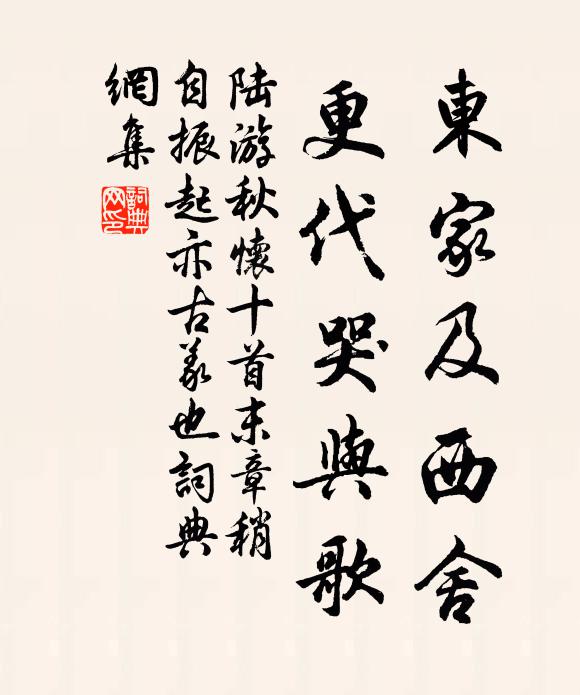 東家及西舍
更代哭與歌
陆游秋懷十首末章稍
自振起亦古義也詞典
網集
詞典
网印